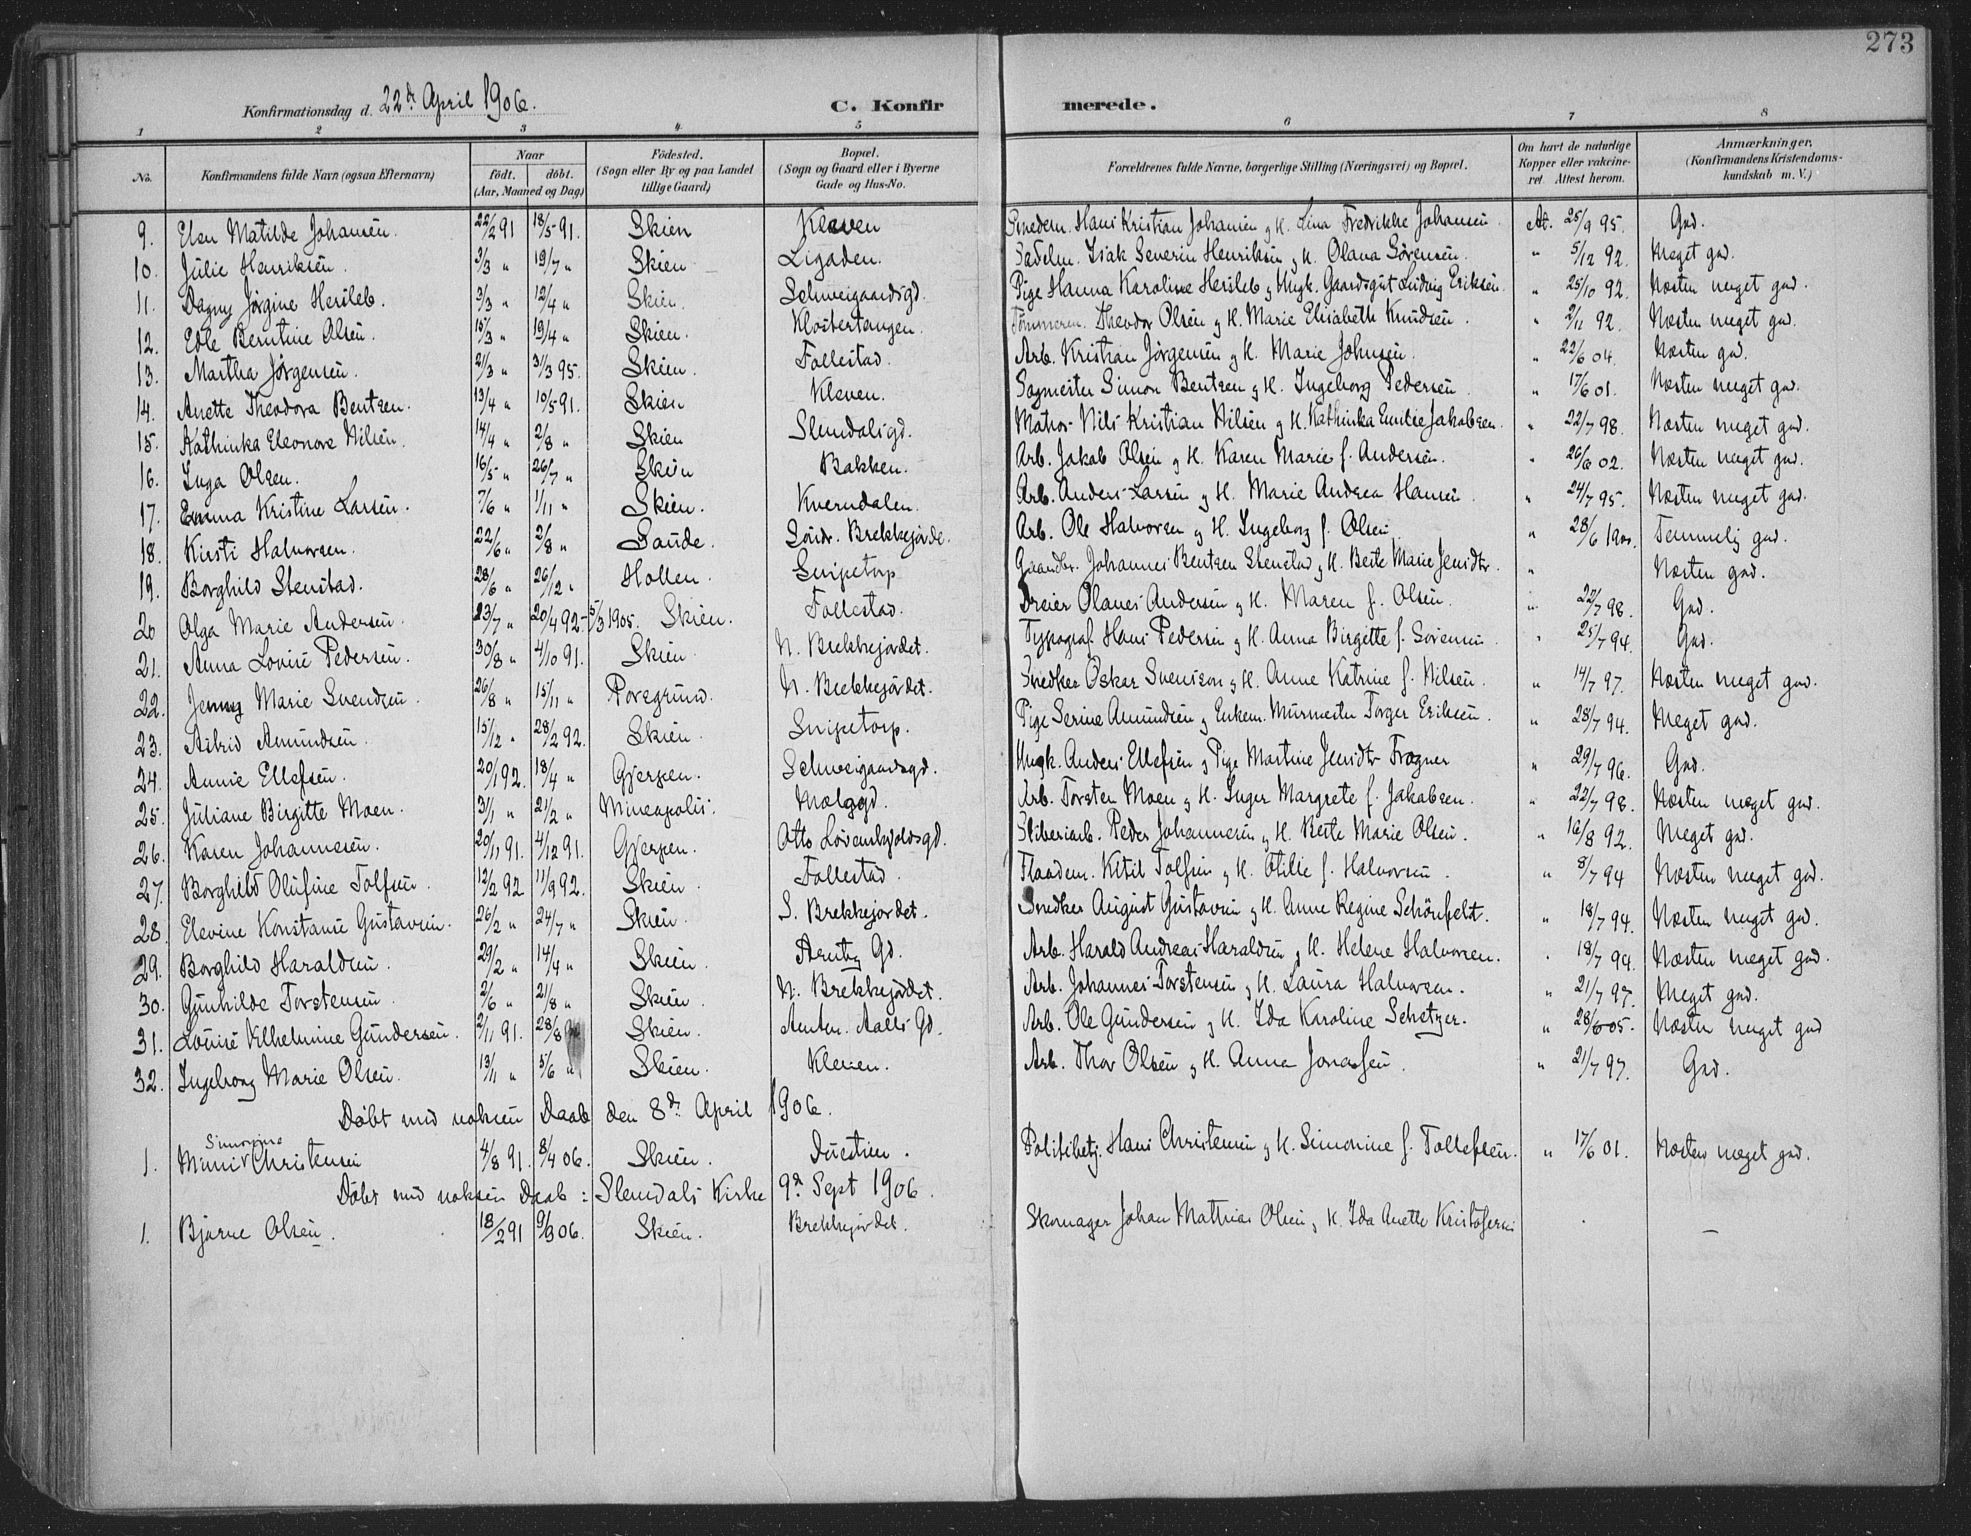 273
Konfirmationsdag d. 22de April 1906. C. Konfirmerede.
1 2 3 4 5 6 7 8
No. Konfirmandens fulde Navn (ogsaa Efternavn) Naar født. døbt. (Aar, Maaned og Dag) Fødested. (Sogn eller By og paa Landet tillige Gaard) Bopæl. (Sogn og Gaard eller i Byerne Gade og Hus-No. Forældrenes fulde Navne, borgerlige Stilling (Næringsvei) og Bopæl. Om havt de naturlige Kopper eller vakcineret. Attest herom. Anmærkninger. (Konfirmandens Kristendomskundskab m. V.)
9. Elen Matilde Johansen. 22/2 91 18/5 91. Skien Kleven Hans Kristian Johansen g H. Lina Fredrikke Johansen At. 25/9 95. God.
10. Julie Henriksen. 3/3 " 19/7 " Skien Ligaden. Sadelm. Isak Severin Henriksen g H. Olana Sørensen. " 5/12 92. Meget god.
11. Dagny Jørgine Hersleb. 3/3 " 12/4 " Skien. Schweigaardsgd. Pige Hanna Karoline Hersleb g Ungk. Gaardsgut Ludvig Eriksen. " 25/10 92. Næsten meget god.
12. Edle Berntine Olsen. 15/3 " 19/4 " Skien. Klostertangen. Tømmerm. Theodor Olsen g H. Marie Elisabeth Knudsen. " 2/11 92. Næsten meget god.
13. Martha Jørgensen. 21/3 " 31/3 95. Skien. Follestad. Arb. Kristian Jørgensen g H. Marie Johnsen. " 22/6 04. Næsten god.
14. Anette Theodora Bentzen. 13/4 " 10/5 91. Skien Kleven. Sagmester Simon Bentzen g H. Ingeborg Pedersen " 17/6 01. Næsten meget god.
15. Kathinka Eleonore Nilsen. 14/4 " 2/8 " Skien Slemdalsgd. Matros Nils Kristian Nilsen g H. Kathinka Emilie Jakobsen. " 22/7 98. Næsten meget god.
16. Inga Olsen. 16/5 " 26/7 " Skien Bakken. Arb. Jakob Olsen g H. Karen Marie f. Andersen. " 26/6 02. Næsten meget god.
17. Emma Kristine Larsen. 7/6 " 1/11 " Skien. Kverndalen. Arb. Anders Larsen g H. Marie Andrea Hansen. " 24/7 95. Næsten meget god.
18. Kirsti Halvorsen. 22/6 " 2/8 " Saude. Søndr. Brekkejorde. Arb. Ole Halvorsen g H. Ingeborg f. Olsen " 28/6 1900. Temmelig god.
19. Borghild Stenstad. 28/6 " 26/12 " Hollen. Snipetorp Gaardbr. Johannes Bentzen Stenstad g H. Berte Marie Jensdtr. " Næsten god.
20 Olga Marie Andersen. 23/7 " 20/4 92- 5/3 1905. Skien. Follestad. Dreier Olaues Andersen g H. Maren f. Olsen. " 22/7 98. God.
21. Anna Lovise Pedersen. 30/8 " 4/10 91. Skien N. Brekkejordet. Typograf Hans Pedersen g H. Anna Birgitte f. Sørensen " 25/7 94. God.
22. Jenny Marie Svendsen. 26/8 " 15/11 " Porsgrund. N. Brekkejordet. Snedker Oskar Svenson g H. Anne Katrine f. Nilsen. " 14/7 97. Næsten meget god.
23. Astrid Amundsen. 15/12 " 28/2 92. Skien. Snipetorp. Pige Serine Amundsen g Enkem. Murmester Torger Eriksen. " 28/7 94. Meget god.
24. Annie Ellefsen. 20/1 92. 18/4 " Gjerpen. Schweigaardsgd. Ungk. Anders Ellefsen g Pige Martine Jensdtr Frogner " 29/7 96. God.
25. Juliane Birgitte Moen. 31/1 " 21/2 " Mineapolis. Mælggd. Arb. Torsten Moen g H. Inger Margrete f. Jakobsen. " 22/7 98. Næsten meget god.
26. Karen Johannesen. 20/11 91. 4/12 91. Gjerpen. Otto Løvenskjoldsgd. Sliberiarb. Peder Johannesen g H. Berte Marie Olsen. " 16/8 92. Meget god.
27. Borghild Olufine Tolfsen. 12/2 92 11/9 92. Skien. Follestad. Flaadem. Kitil Tolfsen g H. Otilie f. Halvorsen. " 8/7 94 Næsten meget god.
28. Elevine Konstanse Gustavsen. 26/2 " 24/7 " Skien. S. Brekkejordet. Snedker August Gustavsen g H. Anne Regine Schönfeldt. " 18/7 94. Næsten meget god.
29. Borghild Haraldsen. 29/2 " 14/4 " Skien. Gd. Arb. Harald Andreas Haraldsen g H. Helene Halvorsen. " 18/7 94. Næsten meget god.
30. Gunhilde Torstensen. 2/6 " 21/8 " Skien. N. Brekkejordet. Arb. Johannes Torstensen g H. Laura Halvorsen. " 21/7 97. Meget god.
31. Lovise Vilhelmine Gundersen. 2/11 91. 28/8 Skien. Aalls Gd. Arb. Ole Gundersen g H. Ida Karoline Schetzer. " 28/6 05. Næsten meget god
32. Ingeborg Marie Olsen. 13/11 " 5/6 " Skien. Kleven. Arb. Thor Olsen g H. Anna Jonassen. " 21/7 97. God.
Døbt med voksen Daab den 8de April 1906.
Simonine
1. Mimi Christensen 4/8 91. 8/4 06. Skien. Duestien. Politibetj. Hans Christensen g H. Simonine f. Tollefsen. " 17/6 01. Næsten meget god.
Døbt med voksen Daab: Slemdals Kirke 9de Sept 1906.
1. Bjarne Olsen. 18/2 91 9/9 06. Skien. Brekkejordet. Skomager Johan Mathias Olsen g H. Ida Anette Kristofersen . –